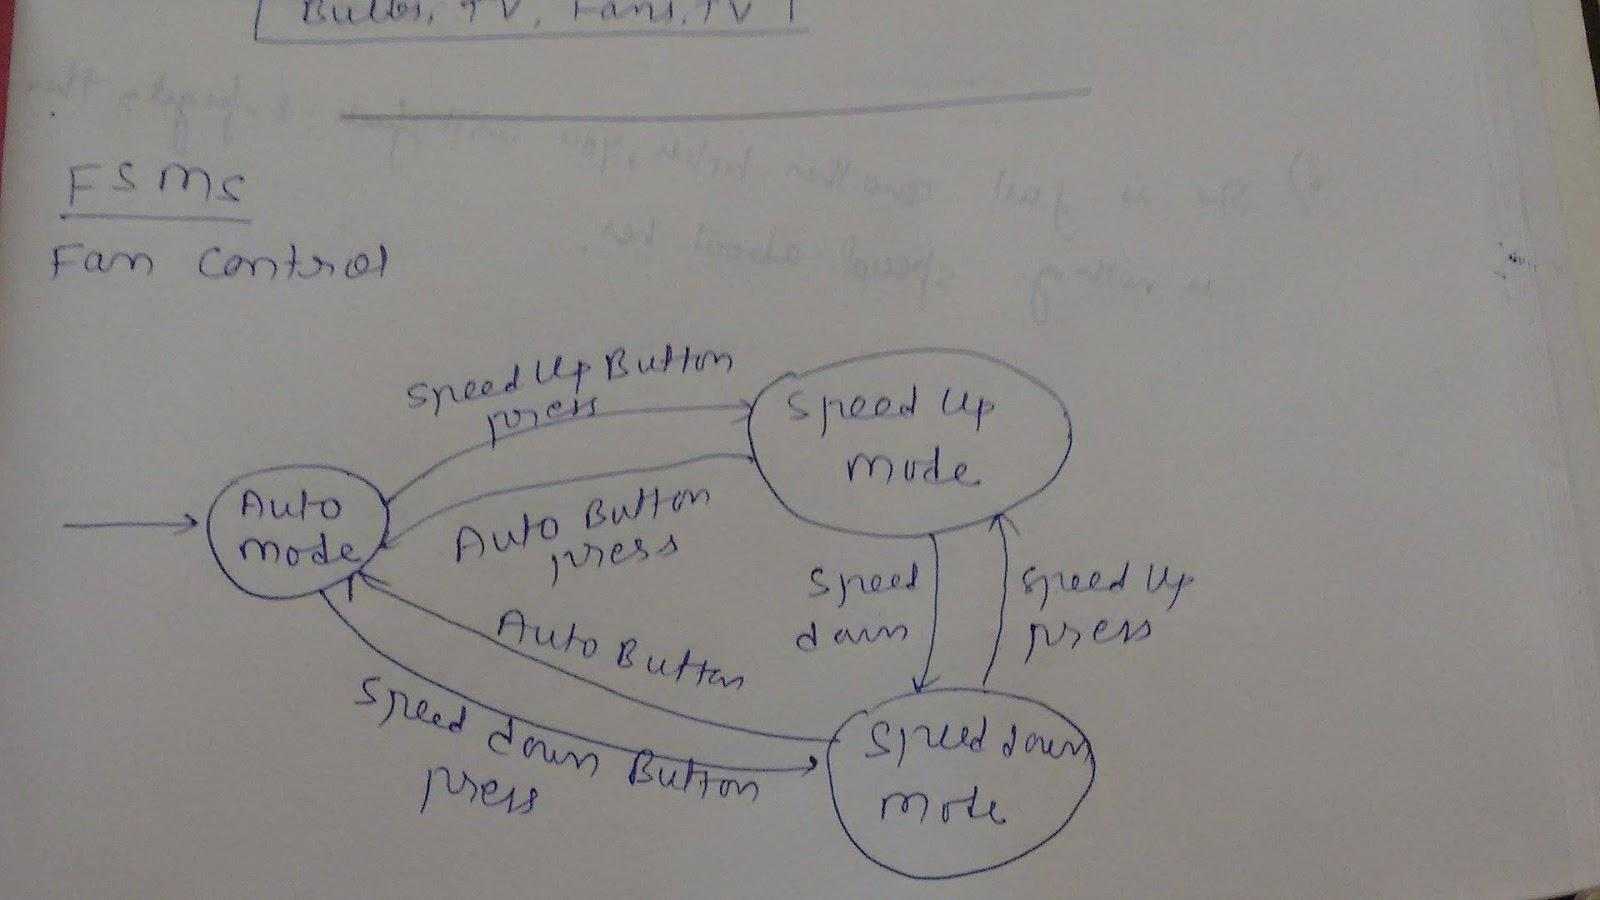 Bulbs, TV, Fans, TV
FSMs
Fan control
Speed Up Button
press
Speed Up
mode
Auto
mode
Auto Button
press
Speed
down
Speed Up
press
Auto Button
Speed down Button
press
Speed down
mode